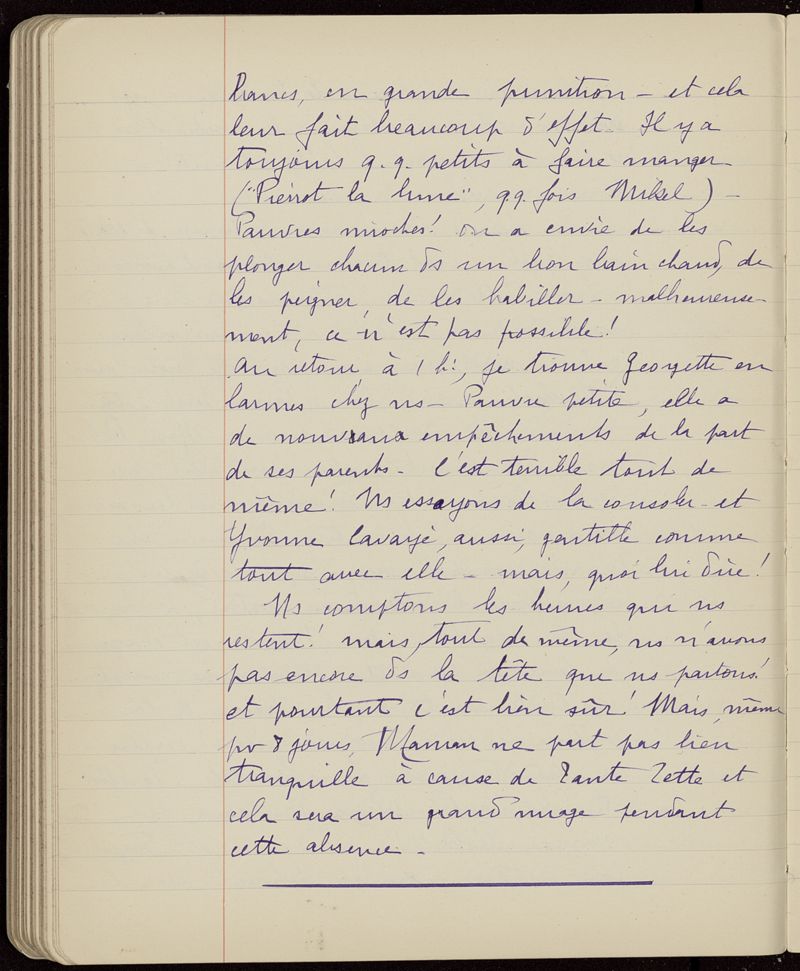 bancs, en grande punition – et cela
leur fait beaucoup d'effet. Il y a
toujours q.q. petits à faire manger
("Pierrot la lune", qq. fois Mikel) –
Pauvres mioches! on a envie de les
plonger chacun ds un bon bain chaud, de
les peigner, de les habiller – malheureuse-
ment, ce n'est pas possible!
Au retour à 1 h:, je trouve Georgette en
larmes chez ns – Pauvre petite, elle a
de nouveaux empêchements de la part
de ses parents – C'est terrible tout de
même! Ns essayons de la consoler – et
Yvonne aussi, gentille comme
tout avec elle – mais, quoi lui dire!
Ns comptons les heures qui ns
restent! mais, tout de même, ns n'avons
pas encore ds la tête que ns partons!
et pourtant c'est bien sûr! Mais, même
pr 8 jours, Maman ne part pas bien
tranquille à cause de Tante Zette et
cela sera un grand nuage pendant
cette absence –